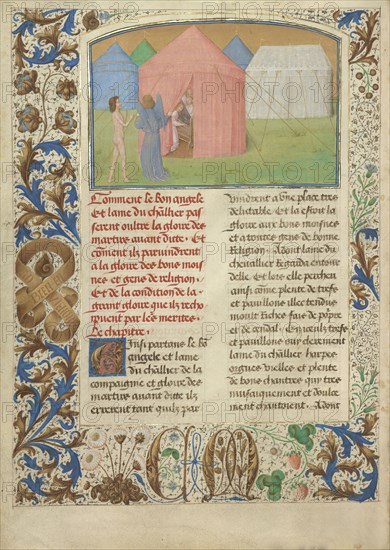 Comment le bon angele
Et lame du chlł̃ier pas
serent oultre la gloire des
martirs auant ditte. Et
coment ilz paruindrent
a la gloire des bons moi
nes et gens de religion.
Et de la condition de la
grant gloire que ilz recho
ipuent par les merites.
Le chapitre.
Ainsi partans le bon
angele et lame
du chlł̃ier de la
compaignie et gloire des
martirs auant ditte ilz
errerent tant quilz par
vindrent a vne place tres
delitable. Et la estoit la
gloire aux bons moisnes
et a toutes gens de bonne
religion. Adont lame du
cheuallier regarda entour
delle. Et lors elle percheu
ainsi come plente de trefs
et pauillons illec tendus
moult riches fais de pourpre
et de cendal. Esquelz trefs
et pauillons ouy clerement
lame du chlł̃ier harpes
orgues vielles et plente
de bons chantres qui tres
musiquement et doulce
ment chantoient. Adont
C M
PHOTO12